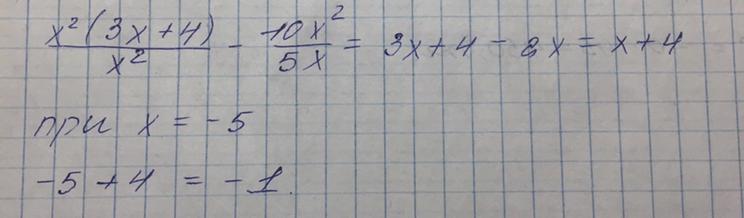 x²(3x+4)/x² - 10x²/5x = 3x+4 - 2x = x+4
при x = -5
-5 + 4 = -1.